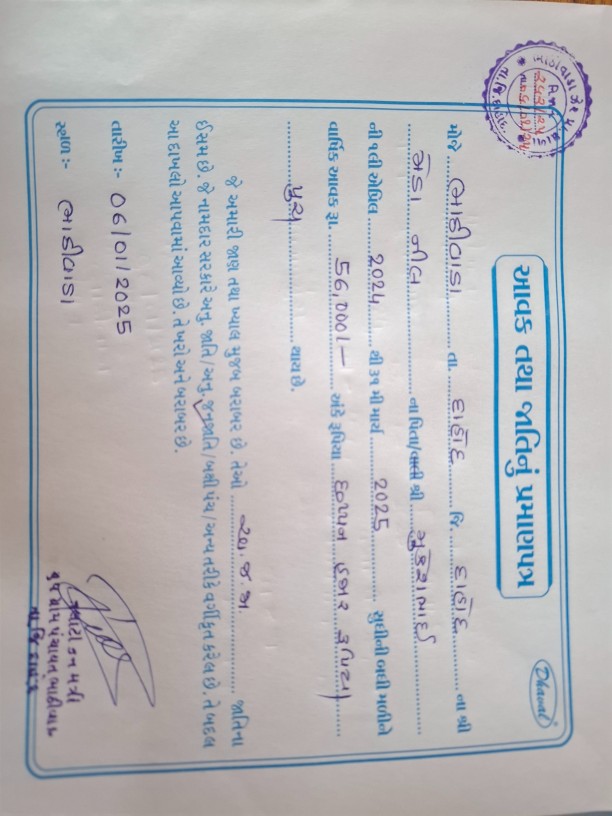 આવક તથા જાતિનું પ્રમાણપત્ર
Dhawal
મોજે ... ભાઠીવાડા ... તા. ... દાહોદ ... જિ. ... દાહોદ ... ના શ્રી
મેડા નીલ ... ના પિતા/વાલી શ્રી ... મુકેશભાઈ
ની ૧લી એપ્રિલ ... 2024 ... થી ૩૧ મી માર્ચ ... 2025 ... સુધીની બધી મળીને
વાર્ષિક આવક રૂા. ... 56,000/- ... અંકે રૂપિયા ... છપ્પન હજાર રૂપિયા
પુરા ... થાય છે.
જે અમારી જાણ તથા ખ્યાલ મુજબ બરાબર છે. તેઓ ... અ.જ.જા. ... જાતિના
ઈસમ છે. જે નામદાર સરકારે અનુ. જાતિ/અનુ. જનજાતિ/બક્ષી પંચ/અન્ય તરીકે વર્ગીકૃત કરેલ છે. તે બદલ
આ દાખલો આપવામાં આવ્યો છે. તે ખરો અને બરાબર છે.
તારીખ :- 06/01/2025
સ્થળ :- ભાઠીવાડા
તલાટી કમ મંત્રી
ગ્રામ પંચાયત ભાઠીવાડા
તા.જિ. દાહોદ